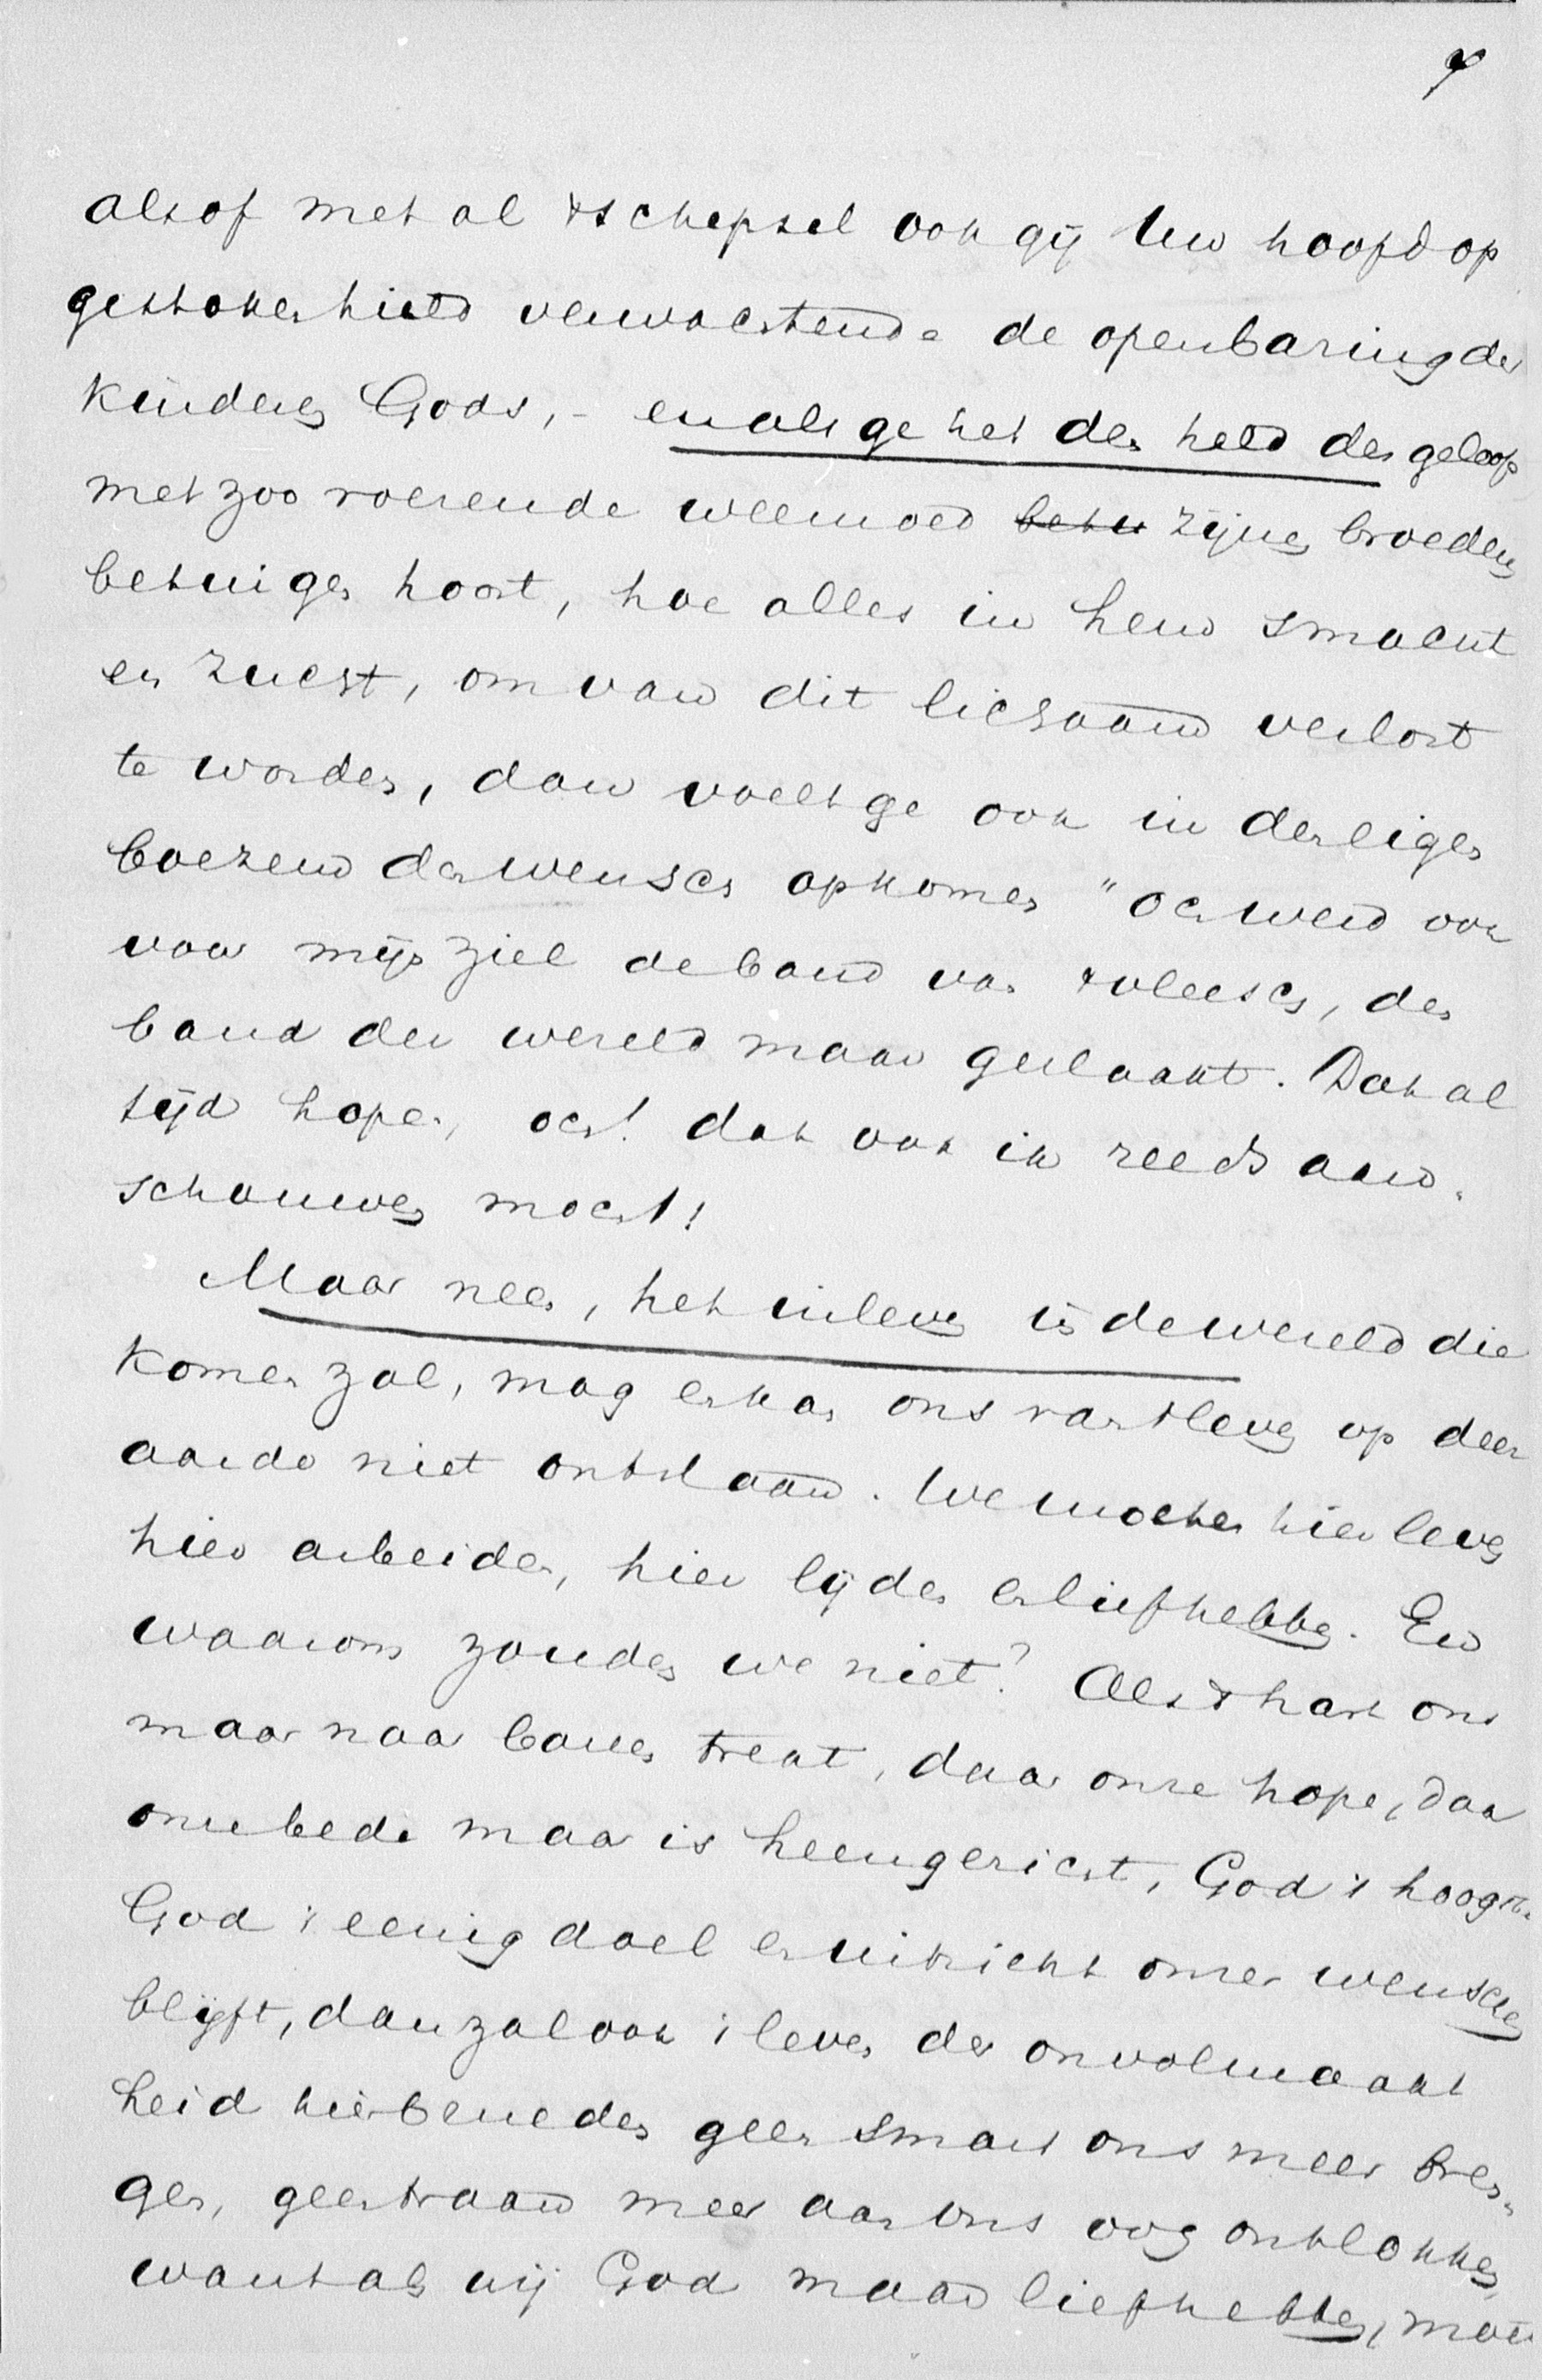 alsof met al 't schepsel ook gij Uw hoofd op
gestoken hield verwachtende de openbaring der
kinderen Gods, - en als ge het den held des geloofs
met zoo roerende weemoed betu zijnen broeders
betuigen hoort, hoe alles in hem smacht
en zucht, om van dit lichaam verlost
te worden, dan voelt ge ook in den eigen
boezem den wensch opkomen "och werd ook
voor mijn ziel de band van 't vleesch, de
band der wereld maar geslaakt. Dat al
tijd hopen, och! dat ook ik reeds aan-
schouwen mocht!
Maar neen, het inleven in de wereld die
komen zal, mag en kan ons van 't leven op deez
aarde niet ontslaan. We moeten hier leven
hier arbeiden, hier lijden en liefhebben. En
waarom zouden we niet? Als 't hart ons
maar naar boven trekt, daar onze hope, daar
onze bede maar is heengericht, God 't hoogste
God 't eenig doel en uitzicht onzer wenschen
blijft, dan zal ook 't leven der onvolmaakt
heid hierbeneden geen smart ons meer bren-
gen, geen traan meer aan ons oog ontlokken,
want als wij God maar liefhebben, moet